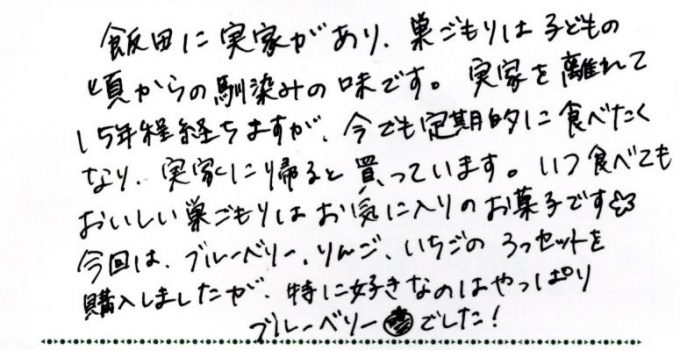 飯田に実家があり、巣ごもりは子どもの
頃からの馴染みの味です。実家を離れて
15年程経ちますが、今でも定期的に食べたく
なり、実家に帰ると買っています。いつ食べても
おいしい巣ごもりはお気に入りのお菓子です
今回は、ブルーベリー、りんご、いちごの3つセットを
購入しましたが、特に好きなのはやっぱり
ブルーベリーでした!